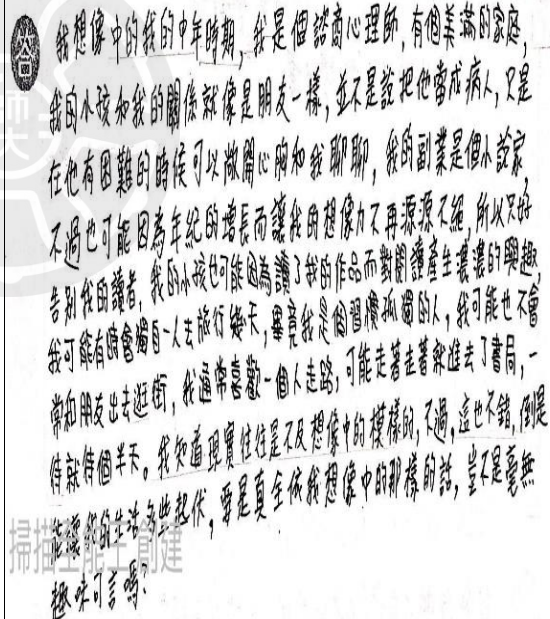 我想像中的我的中年時期,我是個諮商心理師,有個美滿的家庭,
我的小孩和我的關係就像是朋友一樣,並不是說把他當成病人,只是
在他有困難的時候可以敞開心胸和我聊聊,我的副業是個小說家,
不過也可能因為年紀的增長而讓我的想像力不再源源不絕,所以只好
告別我的讀者,我的小孩也可能因為讀了我的作品而對閱讀產生濃濃的興趣,
我可能有時會獨自一人去旅行幾天,畢竟我是個習慣孤獨的人,我可能也不會
常和朋友出去逛街,我通常喜歡一個人走路,可能走著走著就進去了書局,一
待就待個半天。我知道現實往往是不及想像中的模樣的,不過,這也不錯,倒是
能讓我的生活多些起伏,要是真全依我想像中的那樣的話,豈不是毫無
趣味可言嗎?
掃描全能王 創建